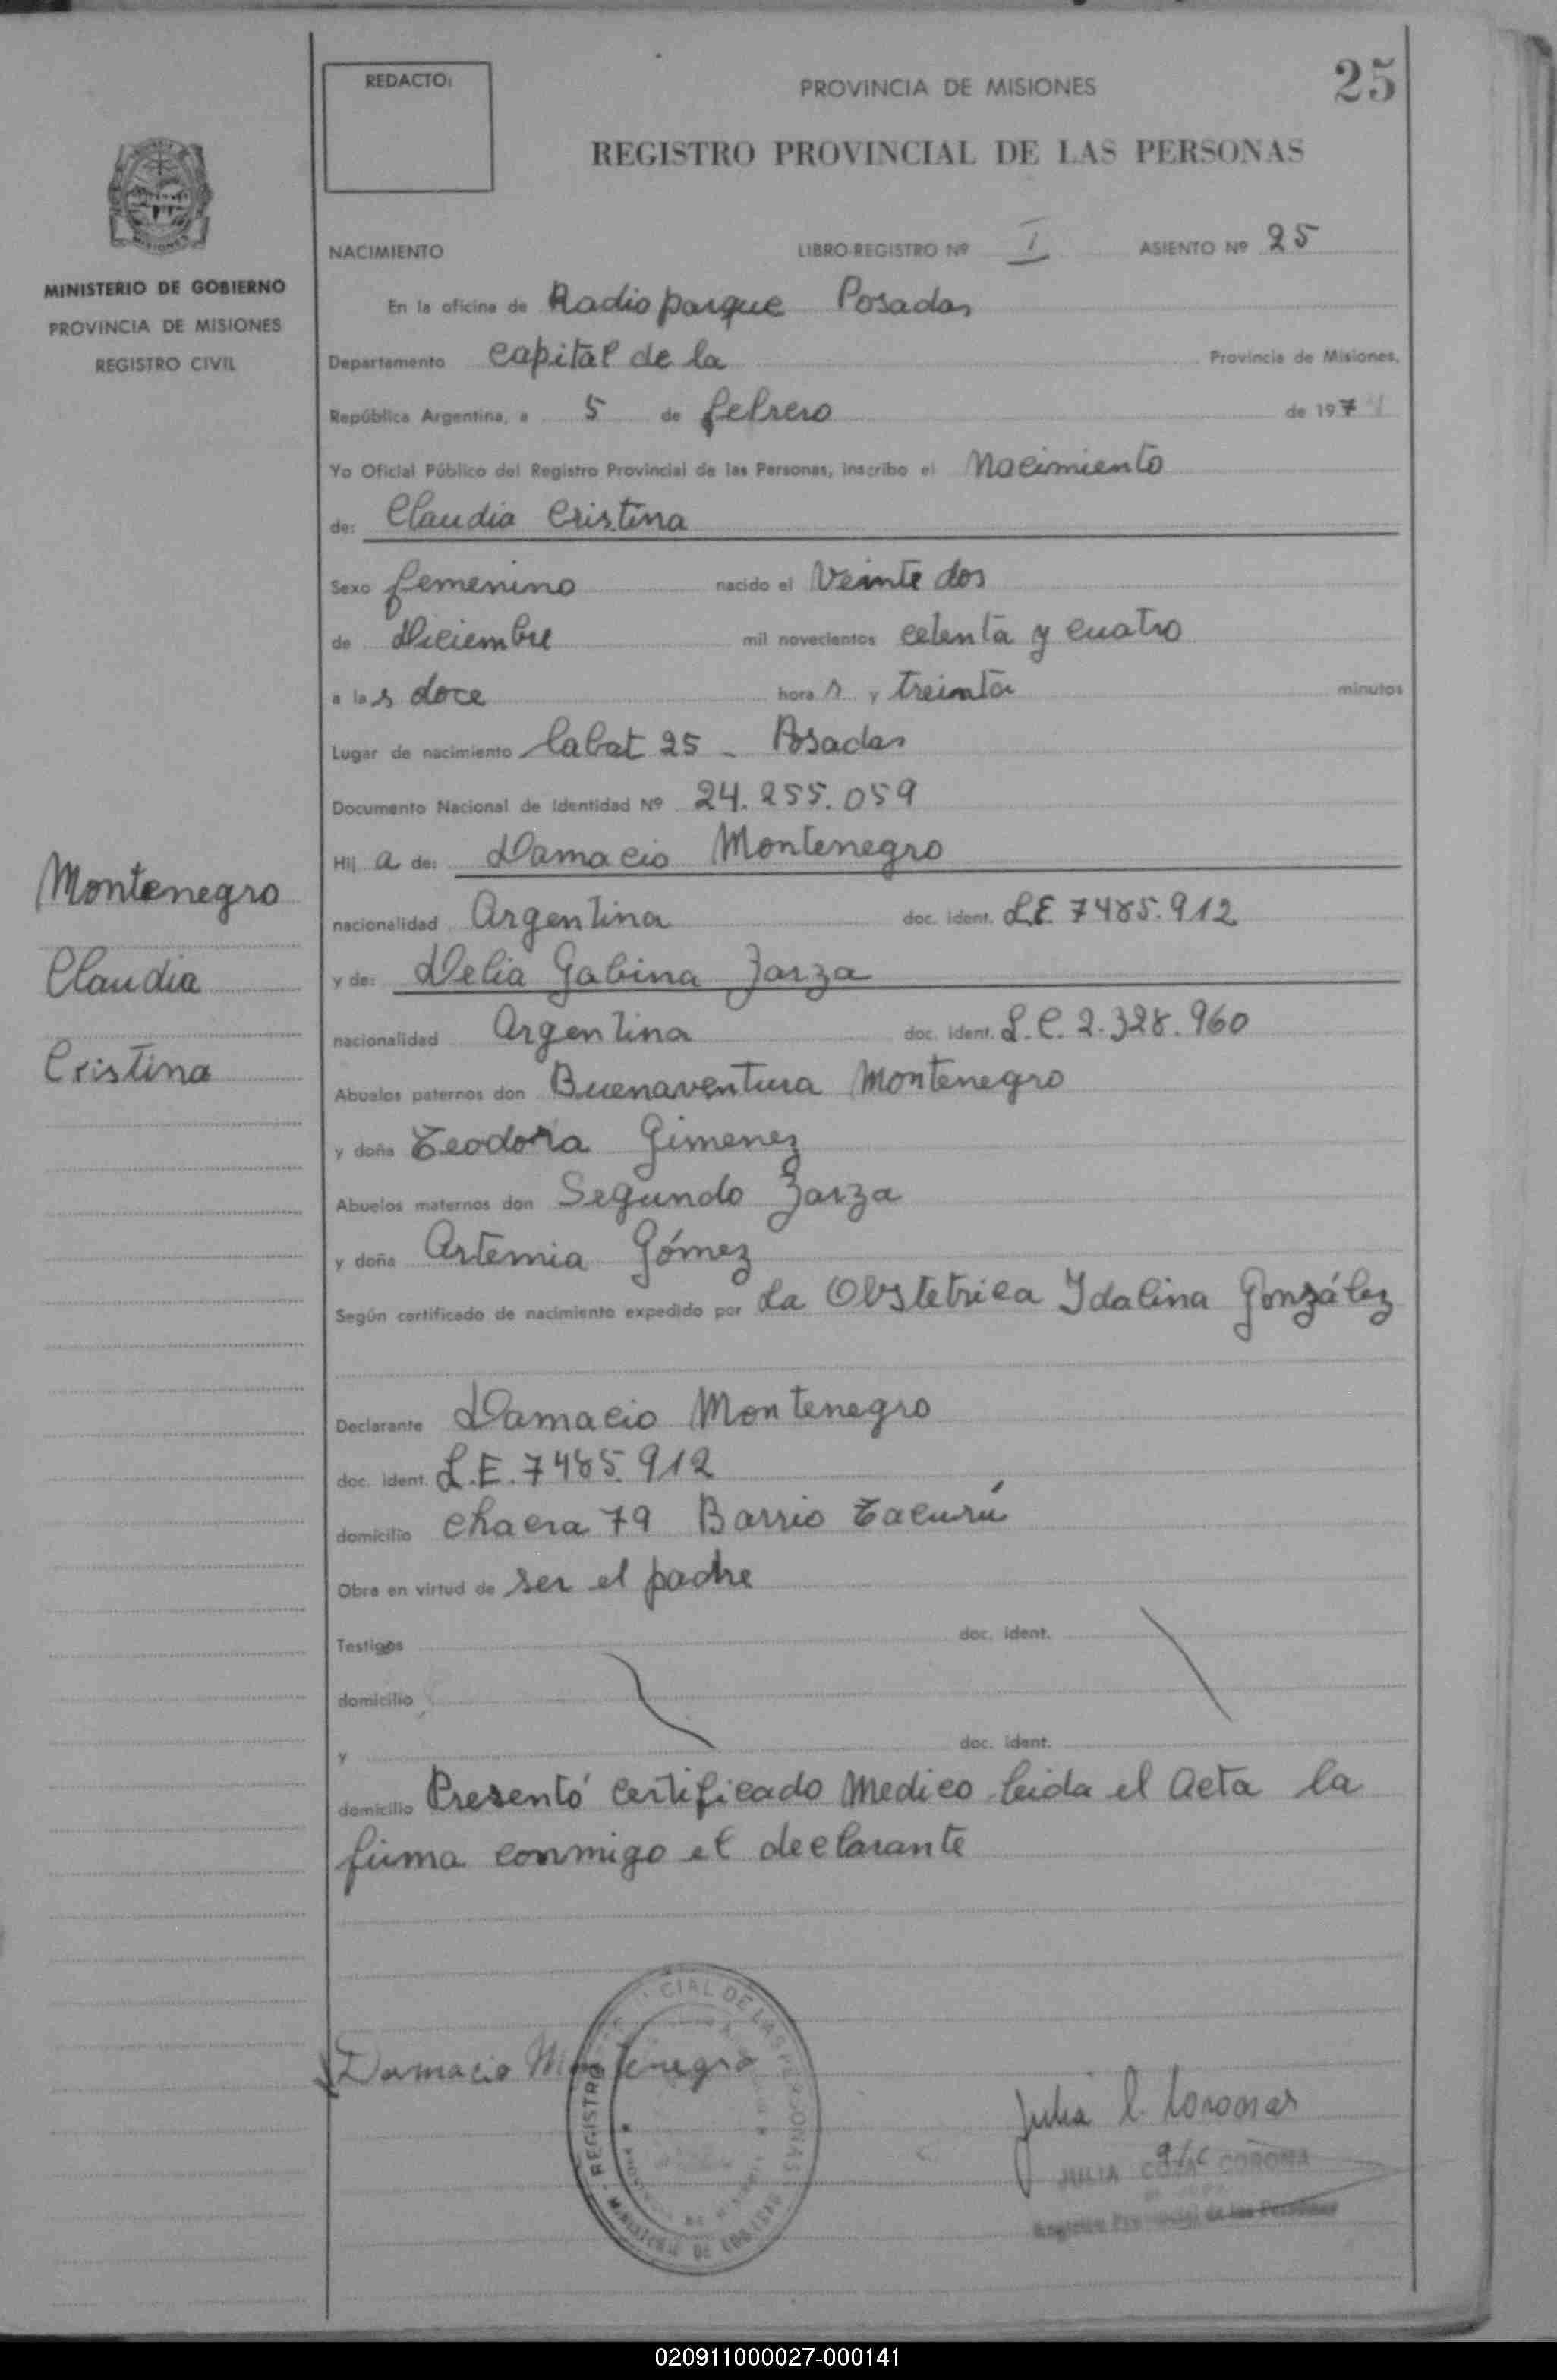 REDACTO:
PROVINCIA DE MISIONES
25
REGISTRO PROVINCIAL DE LAS PERSONAS
MISIONES
MINISTERIO DE GOBIERNO
PROVINCIA DE MISIONES
REGISTRO CIVIL
NACIMIENTO LIBRO-REGISTRO Nº I ASIENTO Nº 25
En la oficina de Radioparque Posadas
Departamento Capital de la Provincia de Misiones,
República Argentina, a 5 de febrero de 197
Yo Oficial Público del Registro Provincial de las Personas, inscribo el Nacimiento
de: Claudia Cristina
Sexo femenino nacido el Veinte dos
de Diciembre mil novecientos cetenta y cuatro
a las doce horas y treinta minutos
Lugar de nacimiento Labat 25 - Posadas
Documento Nacional de Identidad Nº 24.255.059
Hija de: Damacio Montenegro
nacionalidad Argentina doc. ident. L.E 7485.912
y de: Delia Gabina Zarza
nacionalidad Argentina doc. ident. L.C. 2.328.960
Abuelos paternos don Buenaventura Montenegro
y doña Teodora Gimenez
Abuelos maternos don Segundo Zarza
y doña Artemia Gómez
Según certificado de nacimiento expedido por La Obstetrica Idalina González
Declarante Damacio Montenegro
doc. ident. L.E. 7485.912
domicilio Chacra 79 Barrio Tacurú
Obra en virtud de ser el padre
Testigos doc. ident.
domicilio
y doc. ident.
domicilio Presentó Certificado Medico leida el Acta la
firma conmigo el declarante
Montenegro
Claudia
Cristina
Damacio Montenegro
REGISTRO CIAL DE LAS PERSONAS
MINISTERIO DE GOBIERNO
Julia C.
JULIA CORONA
Registro Provincial de las Personas
020911000027-000141